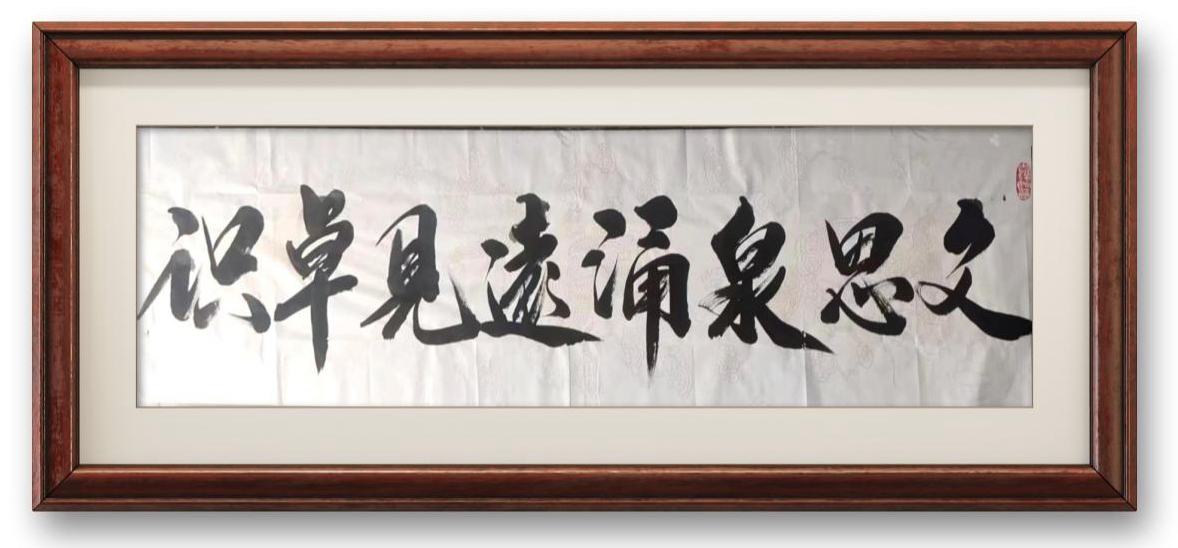 文思泉涌遠見卓识